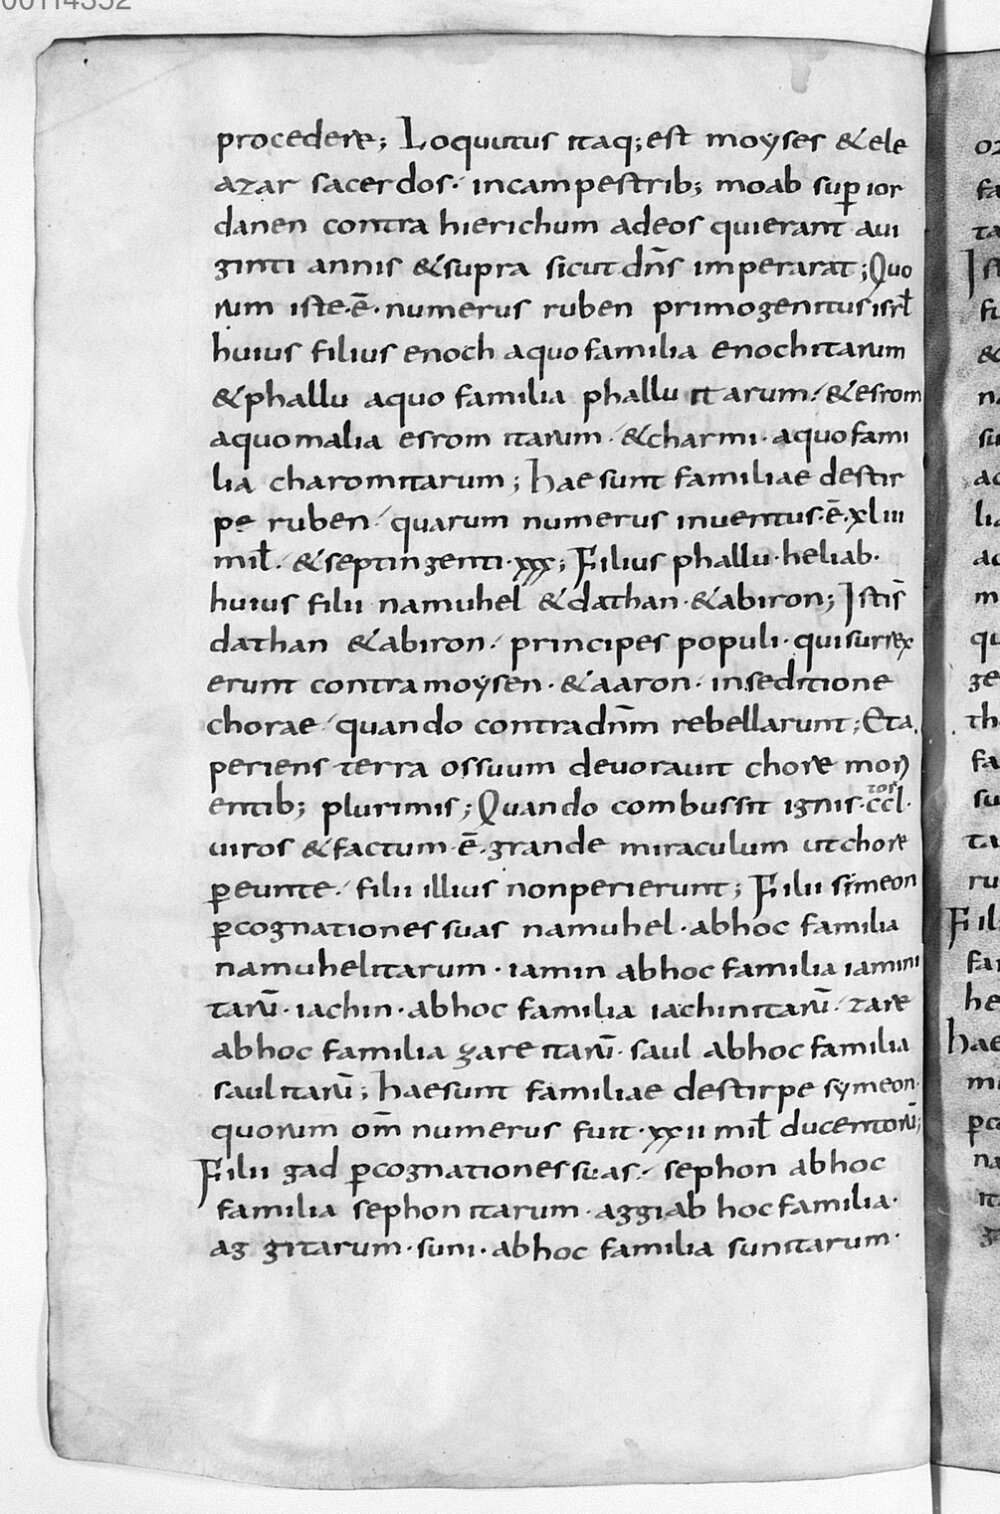 00114352
procedere; Loquutus itaq; est moyses & ele
azar sacerdos· incampestrib; moab sup ior
danen contra hierichum adeos quierant aui
ginti annis & supra sicut dñs imperarat; Quo
rum iste·ē·numerus ruben primogenitus isrł
huius filius enoch aquo familia enochitarum
& phallu aquo familia phalluitarum· & esrom
aquo malia esromitarum· & charmi· aquo fami
lia charomitarum; hae sunt familiae destir
pe ruben· quarum numerus inuentus·ē·xliii
mił· & septingenti·xxx; Filius phallu·heliab·
huius filii namuhel & dathan·& abiron; Istis̄
dathan & abiron· principes populi· quisurrex
erunt contra moysen·& aaron· inseditione
chorae· quando contradn̄m rebellarunt; Eta
periens terra ossuum deuorauit chore mori
entib; plurimis; Quando combussit ignis·c̄c̄l·
tos
uiros & factum·ē·grande miraculum ut chore
peunte· filii illius nonperierunt; Filii simeon
p cognationes suas namuhel·abhoc familia
namuhelitarum·iamin abhoc familia iamini
tarū·iachin·abhoc familia iachinitarū· zare
abhoc familia zareitarū· saul abhoc familia
saulitarū; haesunt familiae destirpe symeon·
quorum om̄ numerus fuit·xxii mił ducentorū;
Filii gad p cognationes suas· sephon abhoc
familia sephonitarum·aggi ab hoc familia·
aggitarum·suni·abhoc familia sunitarum·